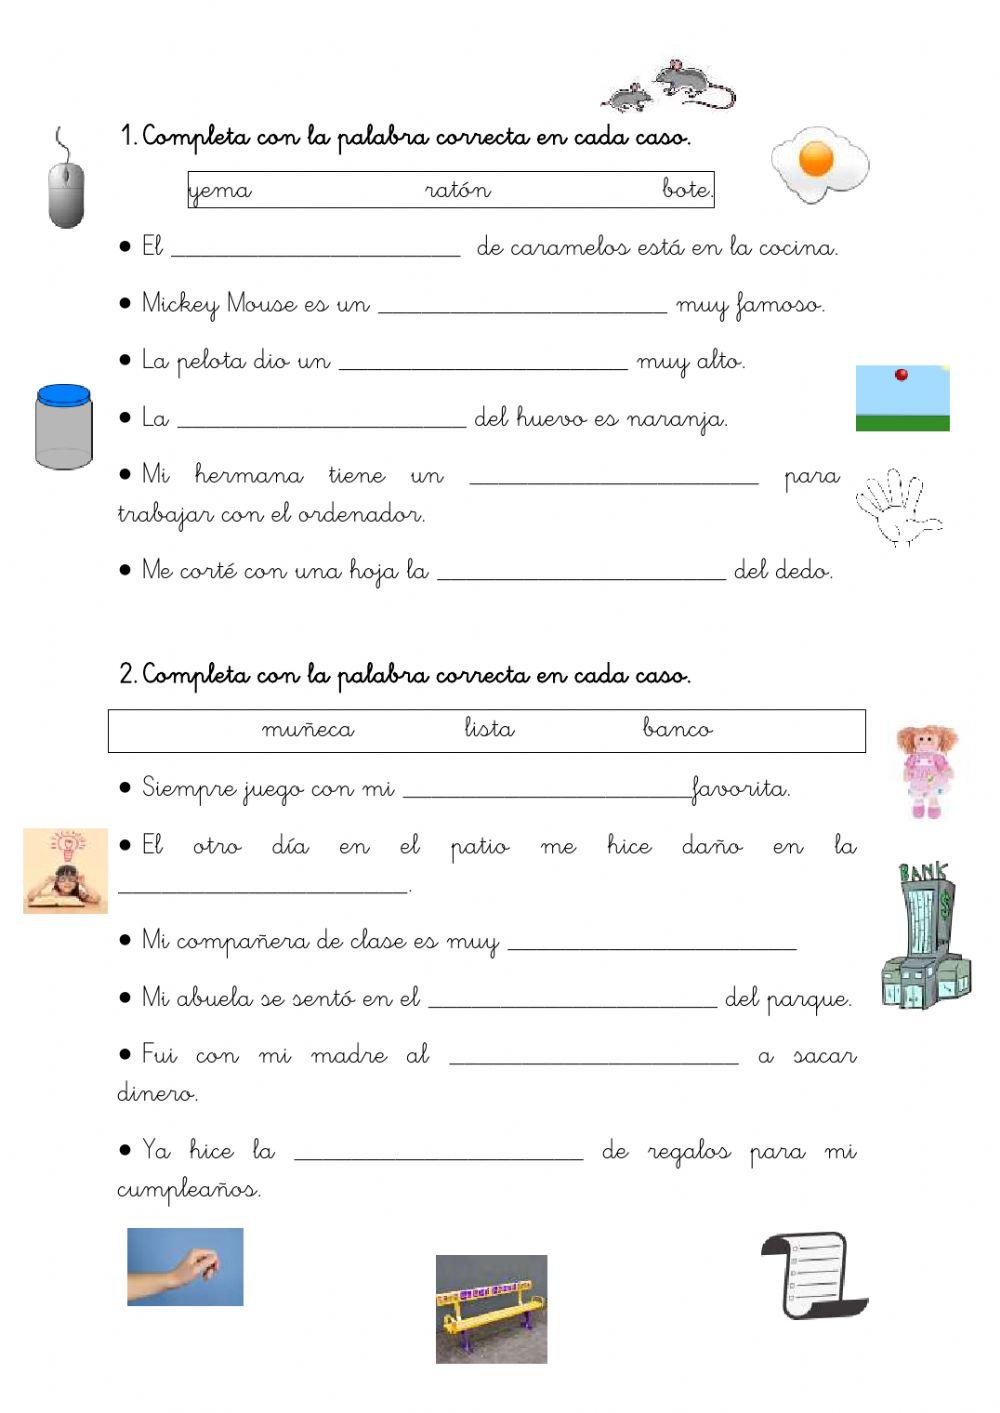 1. Completa con la palabra correcta en cada caso.
yema ratón bote.
• El ____________________ de caramelos está en la cocina.
• Mickey Mouse es un ____________________ muy famoso.
• La pelota dio un ____________________ muy alto.
• La ____________________ del huevo es naranja.
• Mi hermana tiene un ____________________ para
trabajar con el ordenador.
• Me corté con una hoja la ____________________ del dedo.
2. Completa con la palabra correcta en cada caso.
muñeca lista banco
• Siempre juego con mi ____________________favorita.
• El otro día en el patio me hice daño en la
____________________.
• Mi compañera de clase es muy ____________________
BANK
• Mi abuela se sentó en el ____________________ del parque.
• Fui con mi madre al ____________________ a sacar
dinero.
• Ya hice la ____________________ de regalos para mi
cumpleaños.